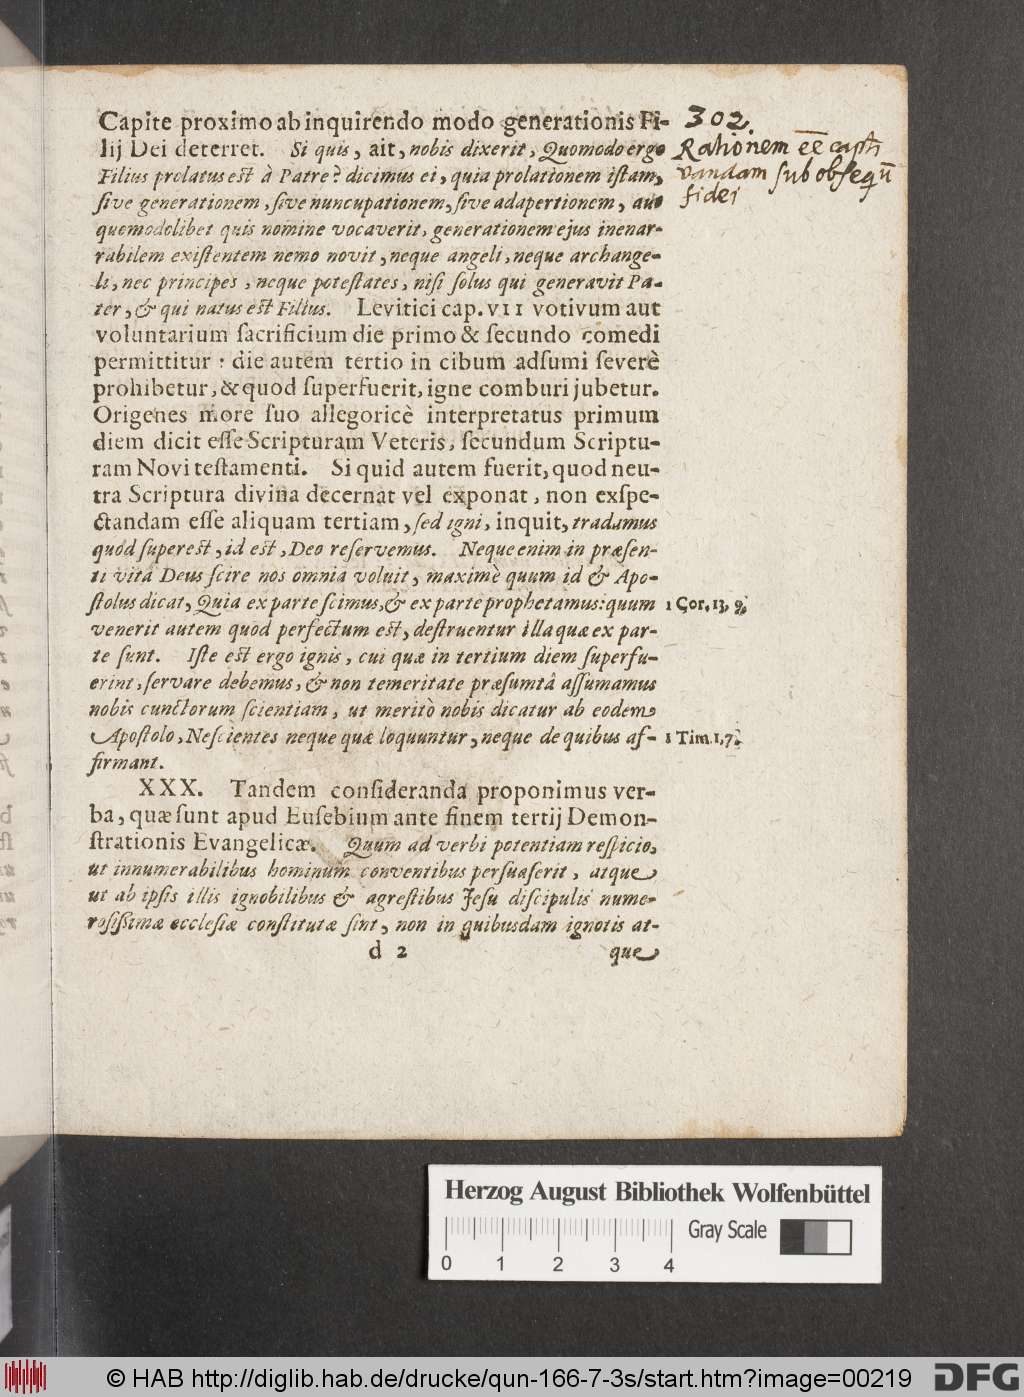 Capite proximo ab inquirendo modo generationis Fi-
lij Dei deterret. Si quis, ait, nobis dixerit, Quomodo ergo
Filius prolatus est à Patre? dicimus ei, quia prolationem istam,
sive generationem, sive nuncupationem, sive adapertionem, aut
quomodolibet quis nomine vocaverit, generationem ejus inenar-
rabilem existentem nemo novit, neque angeli, neque archange-
li, nec principes, neque potestates, nisi solus qui generavit Pa-
ter, & qui natus est Filius. Levitici cap. VII votivum aut
voluntarium sacrificium die primo & secundo comedi
permittitur: die autem tertio in cibum adsumi severè
prohibetur, & quod superfuerit, igne comburi jubetur.
Origenes more suo allegoricè interpretatus primum
diem dicit esse Scripturam Veteris, secundum Scriptu-
ram Novi testamenti. Si quid autem fuerit, quod neu-
tra Scriptura divina decernat vel exponat, non exspe-
ctandam esse aliquam tertiam, sed igni, inquit, tradamus
quod superest, id est, Deo reservemus. Neque enim in præsen-
ti vitâ Deus scire nos omnia voluit, maximè quum id & Apo-
stolus dicat, Quia ex parte scimus, & ex parte prophetamus: quum
venerit autem quod perfectum est, destruentur illa quæ ex par-
te sunt. Iste est ergo ignis, cui quæ in tertium diem superfu-
erint, servare debemus, & non temeritate præsumtâ assumamus
nobis cunctorum scientiam, ut meritò nobis dicatur ab eodem
Apostolo, Nescientes neque quæ loquuntur, neque de quibus af-
firmant.
XXX. Tandem consideranda proponimus ver-
ba, quæ sunt apud Eusebium ante finem tertij Demon-
strationis Evangelicæ. Quum ad verbi potentiam respicio,
ut innumerabilibus hominum conventibus persuaserit, atque
ut ab ipsis illis ignobilibus & agrestibus Jesu discipulis nume-
rosissimæ ecclesiæ constitutæ sint, non in quibusdam ignotis at-
d 2 que
302.
Rationem eē capti
vandam sub obseqū
fidei
1 Cor. 13, 9.
1 Tim. 1, 7.
Herzog August Bibliothek Wolfenbüttel
Gray Scale
0 1 2 3 4
© HAB http://diglib.hab.de/drucke/qun-166-7-3s/start.htm?image=00219
DFG